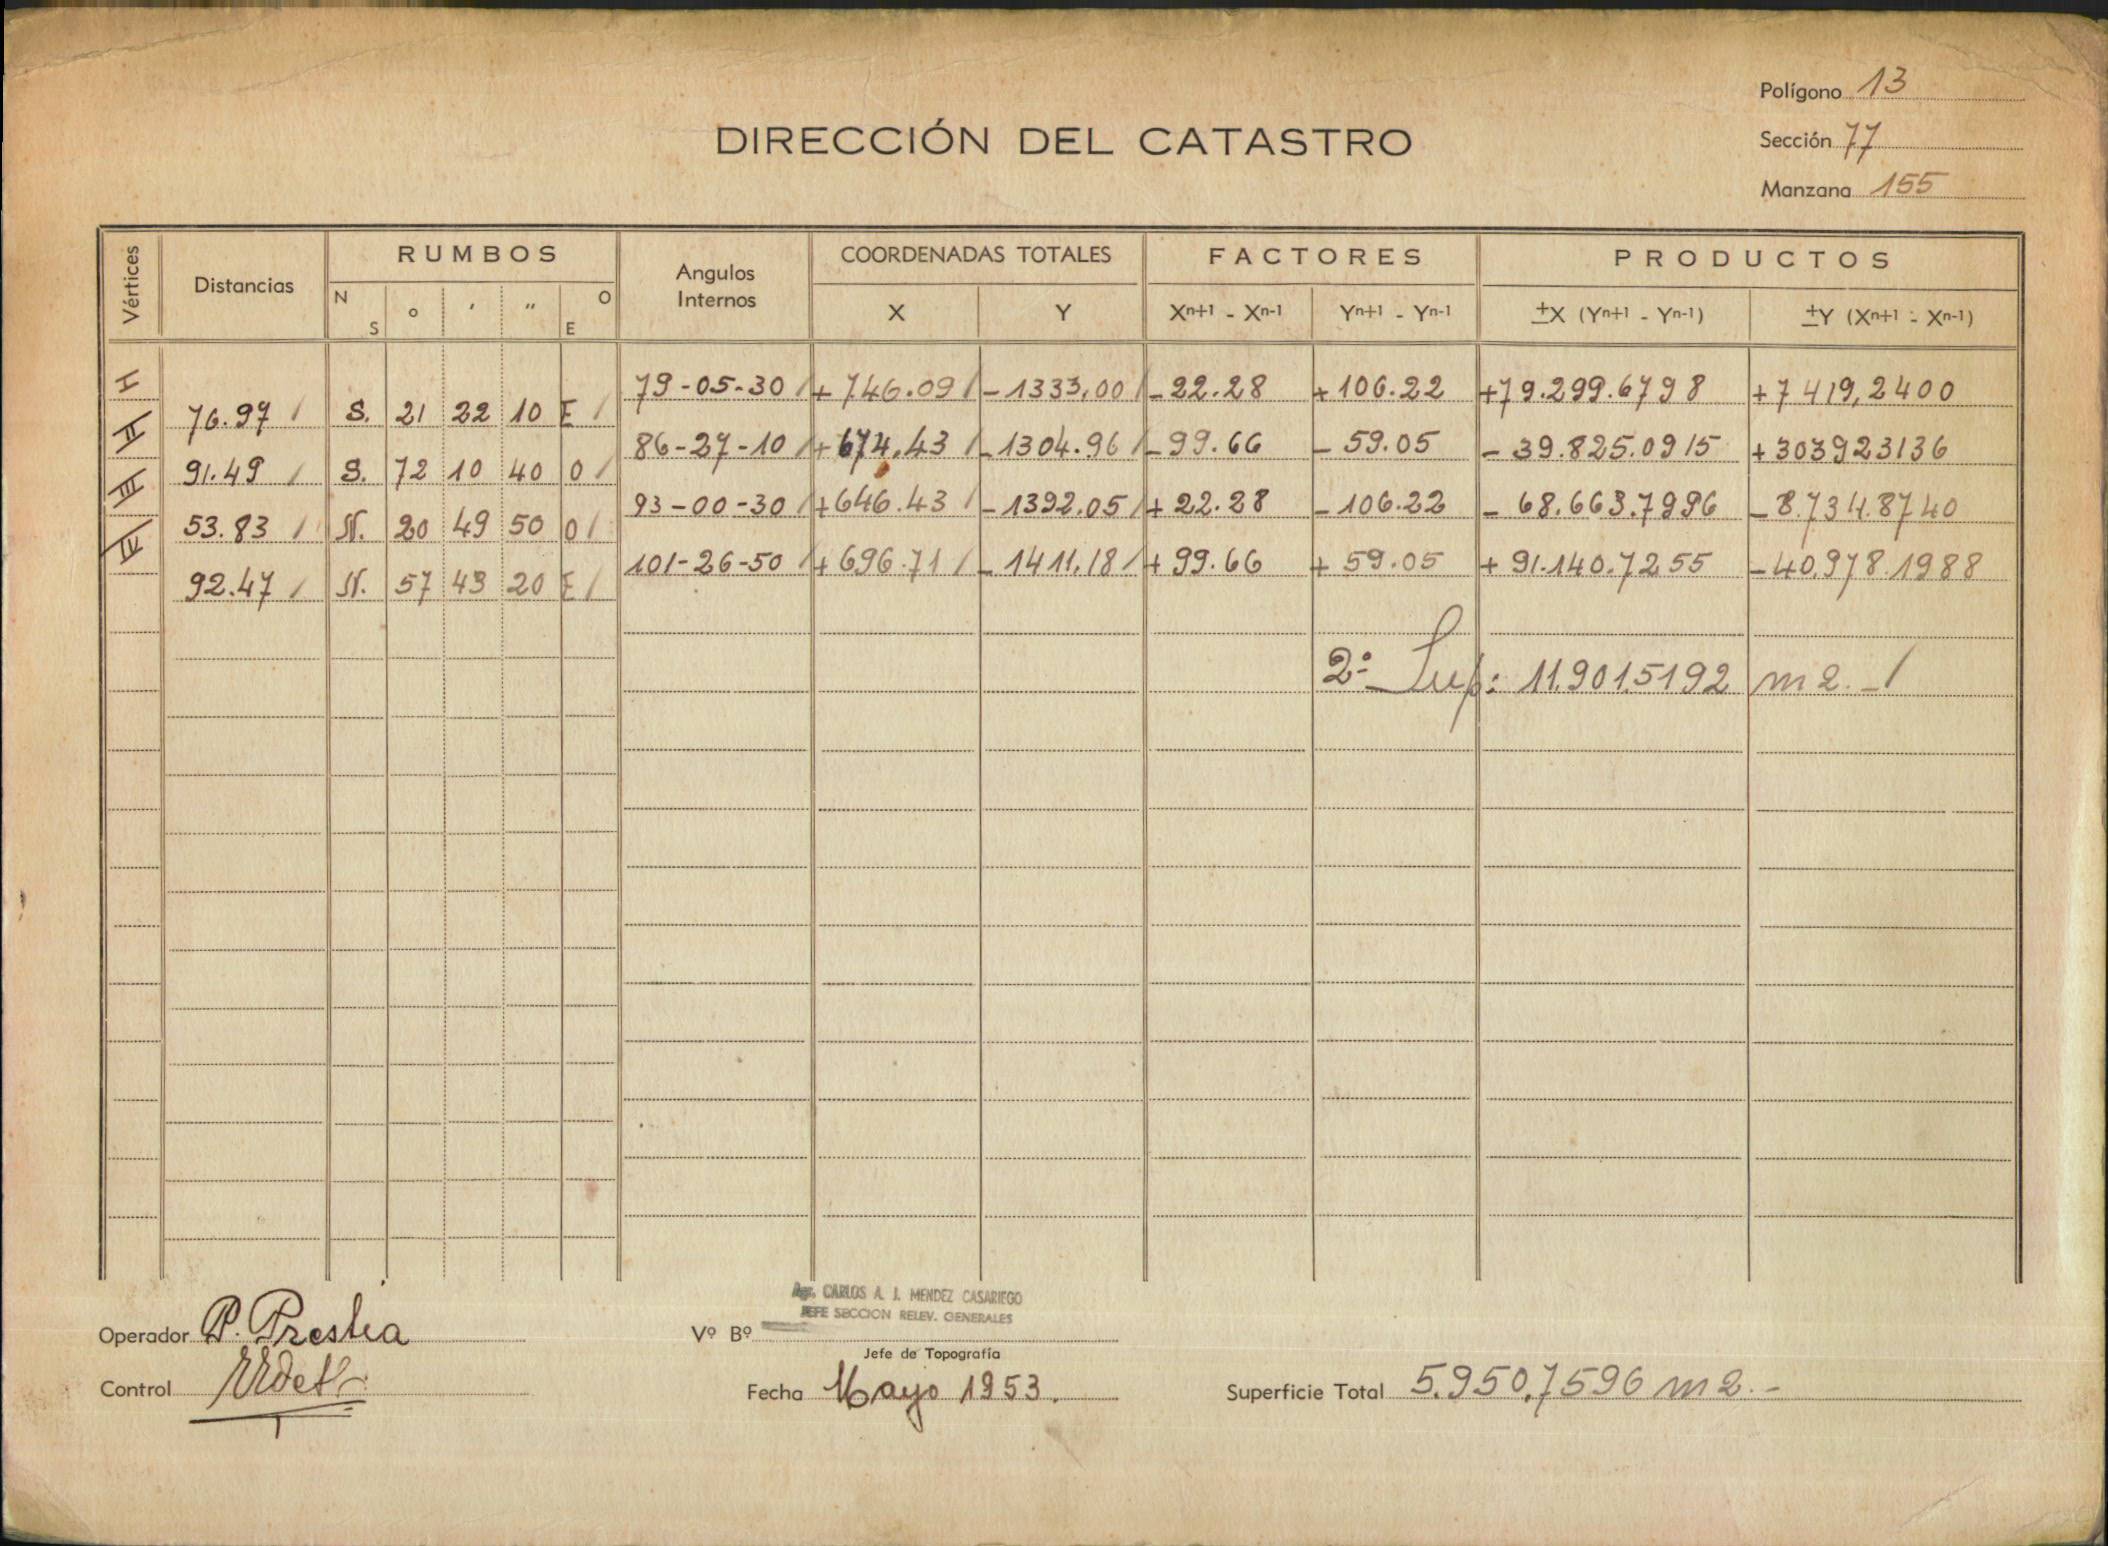 Polígono 13
DIRECCIÓN DEL CATASTRO
Sección 77
Manzana 155
Vértices Distancias RUMBOS Angulos Internos COORDENADAS TOTALES FACTORES PRODUCTOS
N S ° ' " O E X Y Xn+1 - Xn-1 Yn+1 - Yn-1 ±X (Yn+1 - Yn-1) ±Y (Xn+1 - Xn-1)
I 79-05-30 + 746.09 - 1333,00 - 22.28 + 106.22 +79.299.6798 +7 419,2400
76.97 S. 21 22 10 E
II 86-27-10 + 674,43 - 1304.96 - 99.66 - 59.05 - 39.825.0915 + 303923136
91.49 S. 72 10 40 O
III 93-00-30 + 646.43 - 1392,05 + 22.28 - 106.22 - 68.663.7996 - 8.734.8740
53.83 N. 20 49 50 O
IV 101-26-50 + 696.71 - 1411,18 + 99.66 + 59.05 + 91.140.7255 - 40,978.1988
92.47 N. 57 43 20 E
2º Sup: 11.901.5192 m2.-
Agr. CARLOS A. J. MENDEZ CASARIEGO
JEFE SECCION RELEV. GENERALES
Operador P. Prestia Vº Bº
Jefe de Topografía
Control Fecha Mayo 1953. Superficie Total 5.950,7596 m2.-